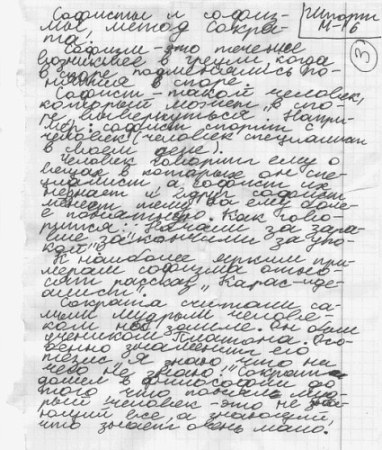 Софисты и софиз-
мы, метод Сокра-
та.
Шпоргал
М-16
3
Софизм - это течение
возникшее в греции, когда
в споре подменялись по-
нятия в споре.
Софист - такой человек,
который может, в спо-
ре вывернуться. Напри-
мер: софист спорит с
человек (человек специалист
в своем деле).
Человек говорит ему о
вещах в которых он спе-
циалист а софист их
незнает и вдруг софист
меняет тему на ему более
е понятную. Как гово-
рится: "Начали за здра-
вие закончили за упо-
кой"
К наиболее ярким при-
мерам софизма отно-
сят рассказ "Карась-иде-
алист".
Сократа считали са-
мым мудрым челове-
ком на земле. Он был
учеником Платона. Осо-
бенно знаменит его
тезис "Я знаю, что ни-
чего не знаю." Сократ
дошел в философии до
того что понял муд-
рый человек - это не зна-
ющий все, а знающий,
что знает очень мало.